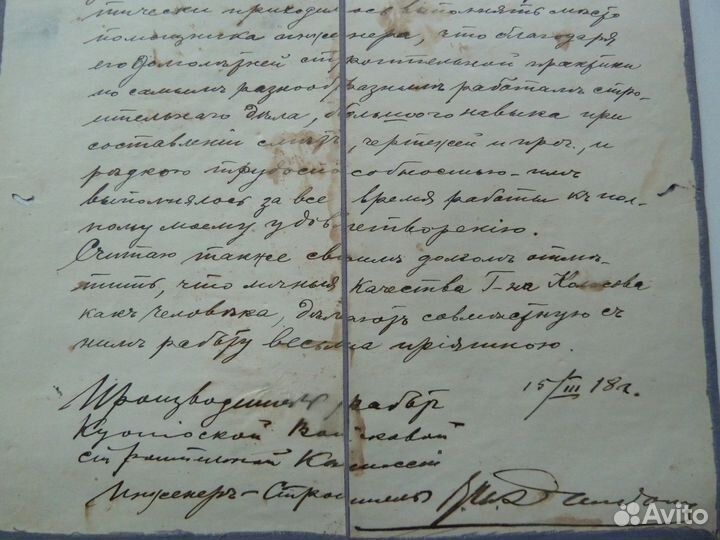 тически приходилось выполнять место
помощника инженера, что благодаря
его долголѣтней строительной практики
по самымъ разнообразнымъ работамъ стро-
ительнаго дѣла, большого навыка при
составленіи смѣтъ, чертежей и проч., и
рѣдкою трудоспособностью имъ
выполнялось за все время работы къ пол-
ному моему удовлетворенію.
Считаю также своимъ долгомъ отмѣ-
тить, что личныя качества Г-на
какъ человѣка, дѣлаютъ совмѣстную съ
нимъ работу весьма пріятною.
15/III 18 г.
Производитель работъ
Войсковой
строительной Комиссіи
Инженеръ-Строитель
Avito